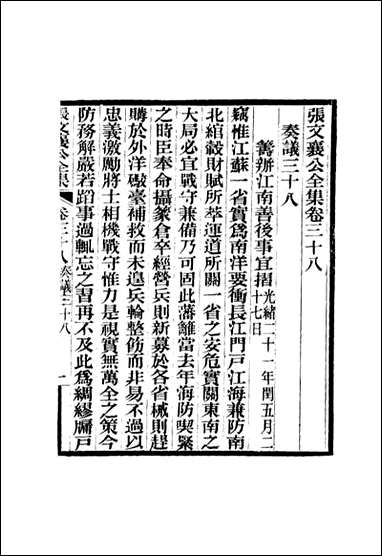 張文襄公全集卷三十八
奏議三十八
籌辦江南善後事宜摺光緒二十一年閏五月二
十七日
竊惟江蘇一省實爲南洋要衝長江門戶江海兼防南
北綰轂財賦所萃運道所關一省之安危實關東南之
大局必宜戰守兼備乃可固此藩籬當去年海防喫緊
之時臣奉命攝篆倉卒經營兵則新募於各省械則趕
購於外洋礮臺補救而未遑兵輪整飭而非易不過以
忠義激勵將士相機戰守惟力是視實無萬全之策今
防務解嚴若蹈事過輒忘之習再不及此爲綢繆牖戶
張文襄公全集 卷三十八 奏議三十八 一